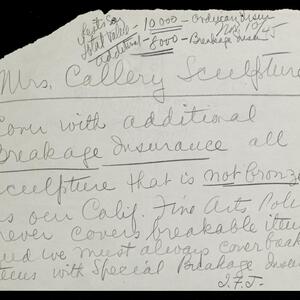 10,000 - Ordinary Insur
additional 8000 - Breakage Insur.
Mrs. Callery Sculpture
Cover with additional
Breakage Insurance all
sculpture that is not Bronze
as our Calif. Fine Arts Poli
never covers breakable items
and we must always cover
items with Special Breakage Insur